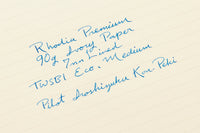 Rhodia Premium
90g Ivory Paper
7mm Lined
TWSBI Eco, Medium
Pilot Iroshizuku Kon-Peki